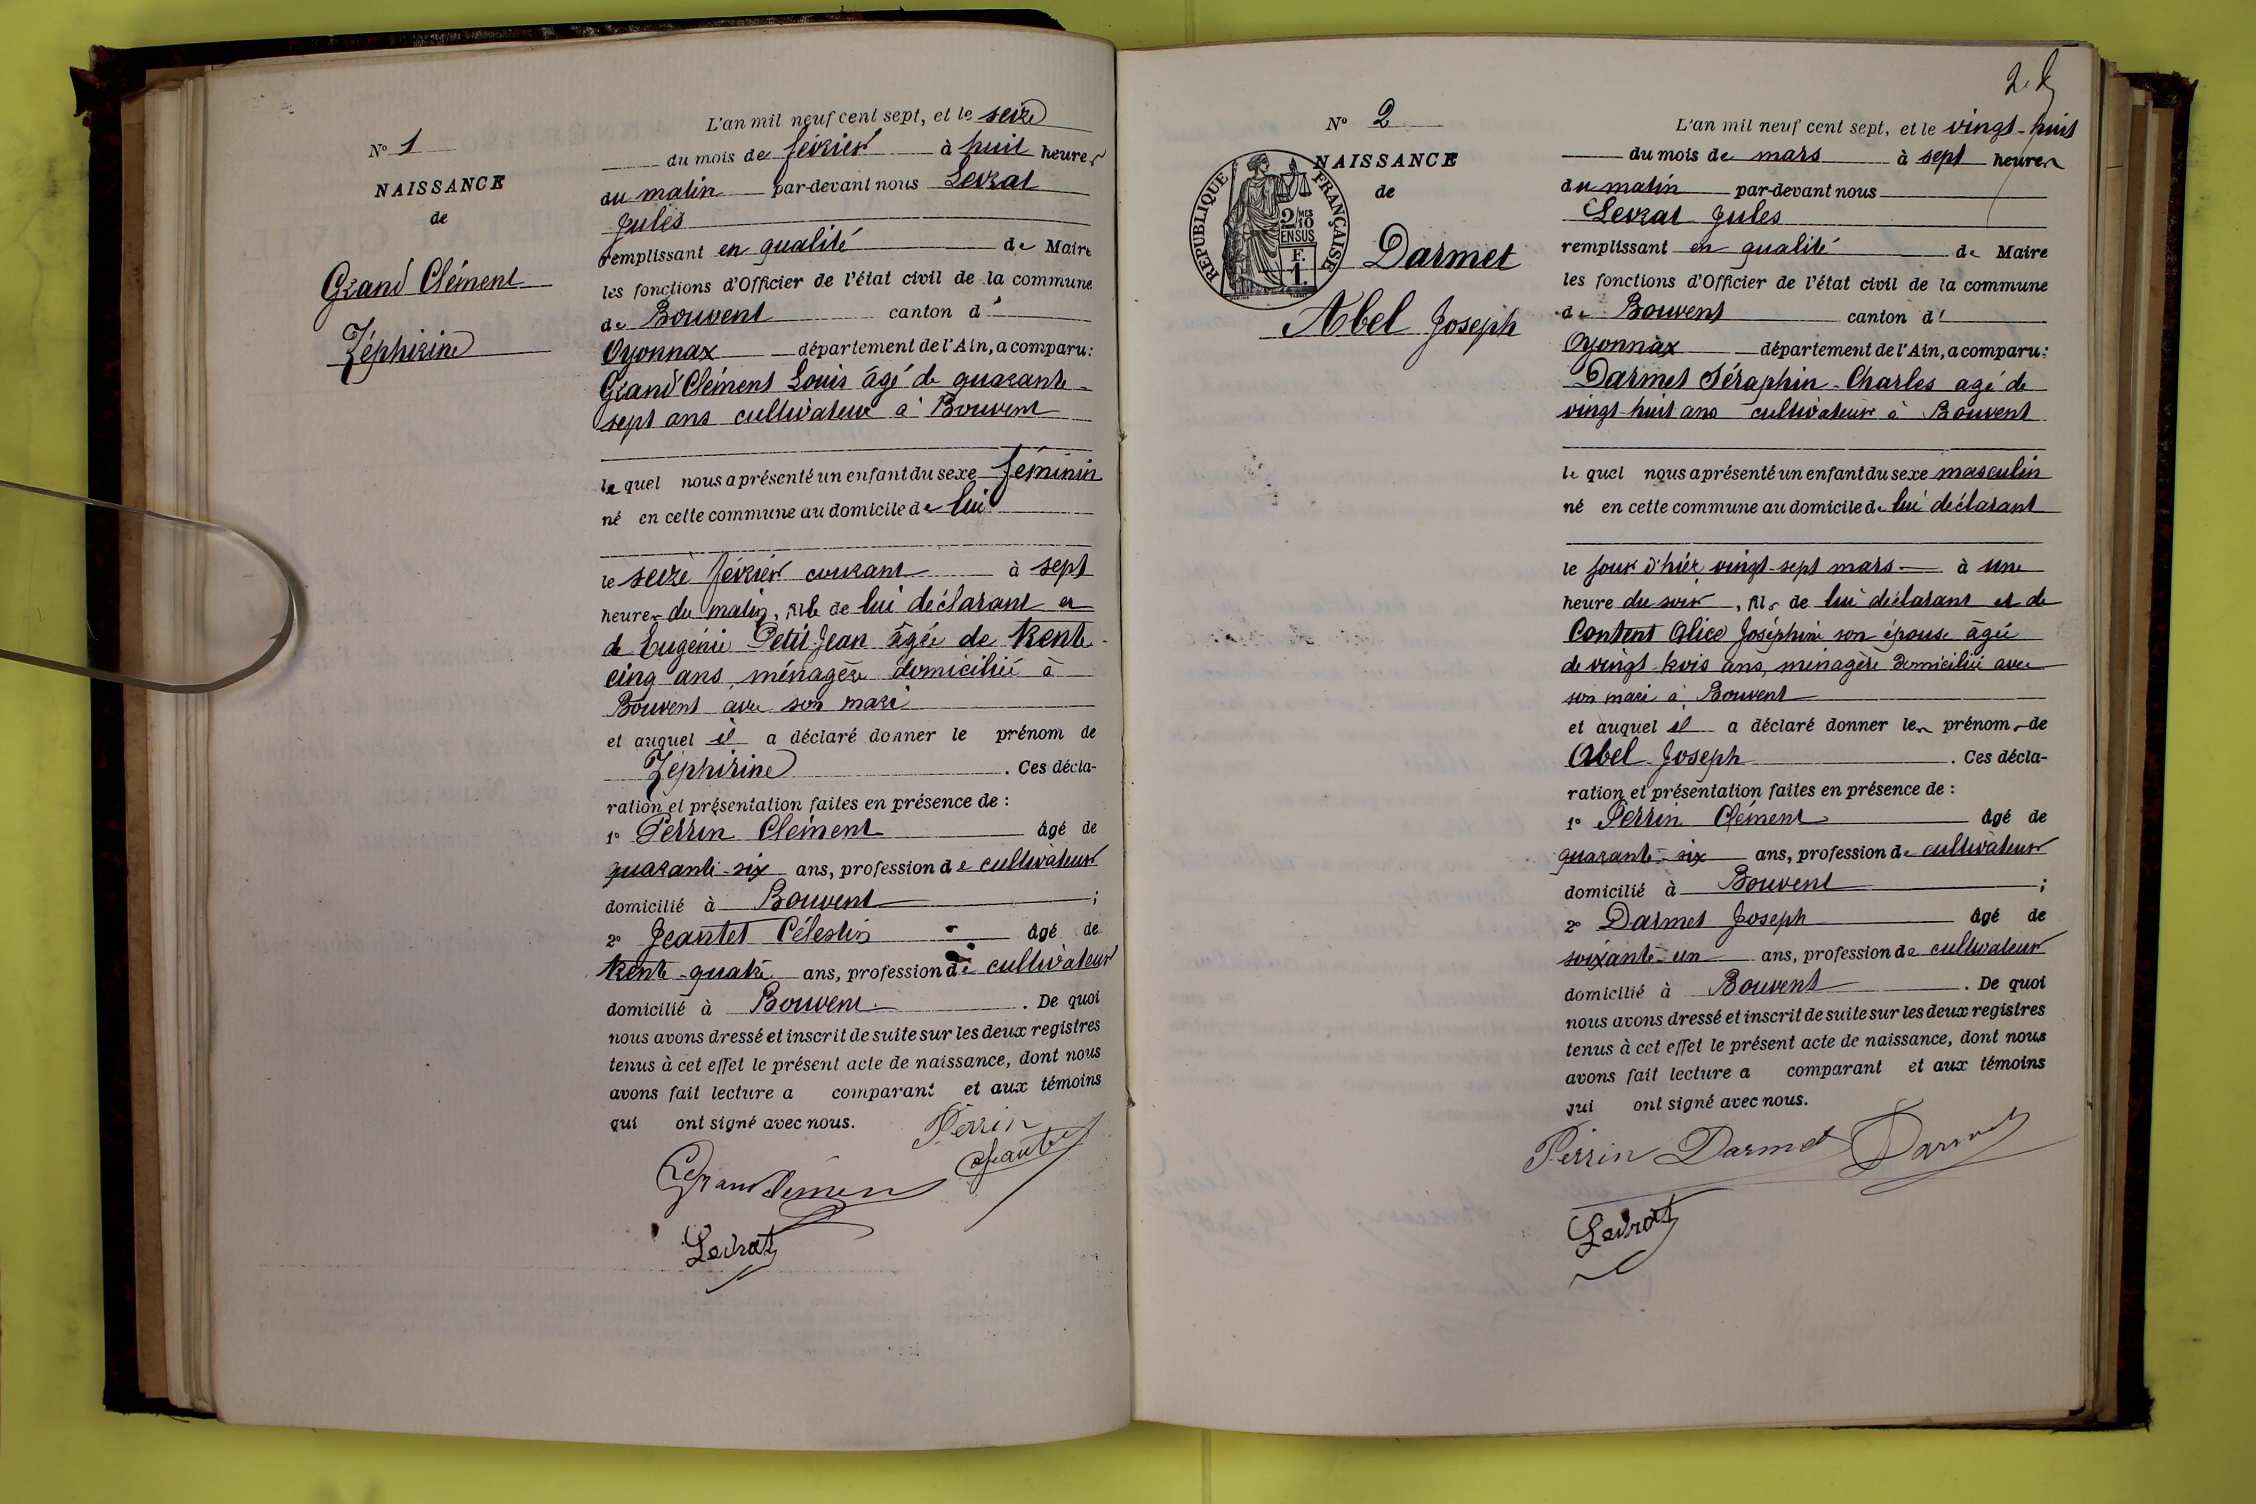 Nº 1
NAISSANCE
de
Grand Clément
Zéphirine
L'an mil neuf cent sept, et le seize
du mois de février à huit heures
du matin par-devant nous Levrat
Jules
remplissant en qualité de Maire
les fonctions d'Officier de l'état civil de la commune
de Bouvent canton d'
Oyonnax département de l'Ain, a comparu:
Grand Clément Louis âgé de quarante-
sept ans cultivateur à Bouvent
lequel nous a présenté un enfant du sexe féminin
né en cette commune au domicile de lui
le seize février courant à sept
heures du matin, fille de lui déclarant et
de Eugénie Petit-Jean âgée de trente-
cinq ans, ménagère domiciliée à
Bouvent avec son mari
et auquel il a déclaré donner le prénom de
Zéphirine. Ces décla-
ration et présentation faites en présence de :
1º Perrin Clément âgé de
quarante-six ans, profession de cultivateur
domicilié à Bouvent ;
2º Jeantet Célestin âgé de
trente-quatre ans, profession de cultivateur
domicilié à Bouvent. De quoi
nous avons dressé et inscrit de suite sur les deux registres
tenus à cet effet le présent acte de naissance, dont nous
avons fait lecture a comparant et aux témoins
qui ont signé avec nous. Perrin
Jeantet
Grandclément
Levrat
2
Nº 2
NAISSANCE
de
Darmet
Abel Joseph
RÉPUBLIQUE FRANÇAISE
2/MES
10
EN SUS
F.
1.
L'an mil neuf cent sept, et le vingt-huit
du mois de mars à sept heures
du matin par-devant nous
Levrat Jules
remplissant en qualité de Maire
les fonctions d'Officier de l'état civil de la commune
de Bouvent canton d'
Oyonnax département de l'Ain, a comparu:
Darmet Séraphin-Charles agé de
vingt-huit ans cultivateur à Bouvent
lequel nous a présenté un enfant du sexe masculin
né en cette commune au domicile de lui déclarant
le jour d'hier vingt-sept mars à une
heure du soir, fils de lui déclarant et de
Content Alice Joséphine son épouse âgée
de vingt-trois ans, ménagère domiciliée avec
son mari à Bouvent
et auquel il a déclaré donner les prénoms de
Abel Joseph. Ces décla-
ration et présentation faites en présence de :
1º Perrin Clément âgé de
quarante-six ans, profession de cultivateur
domicilié à Bouvent ;
2º Darmet Joseph âgé de
soixante-un ans, profession de cultivateur
domicilié à Bouvent. De quoi
nous avons dressé et inscrit de suite sur les deux registres
tenus à cet effet le présent acte de naissance, dont nous
avons fait lecture a comparant et aux témoins
qui ont signé avec nous.
Perrin Darmet Darmet
Levrat